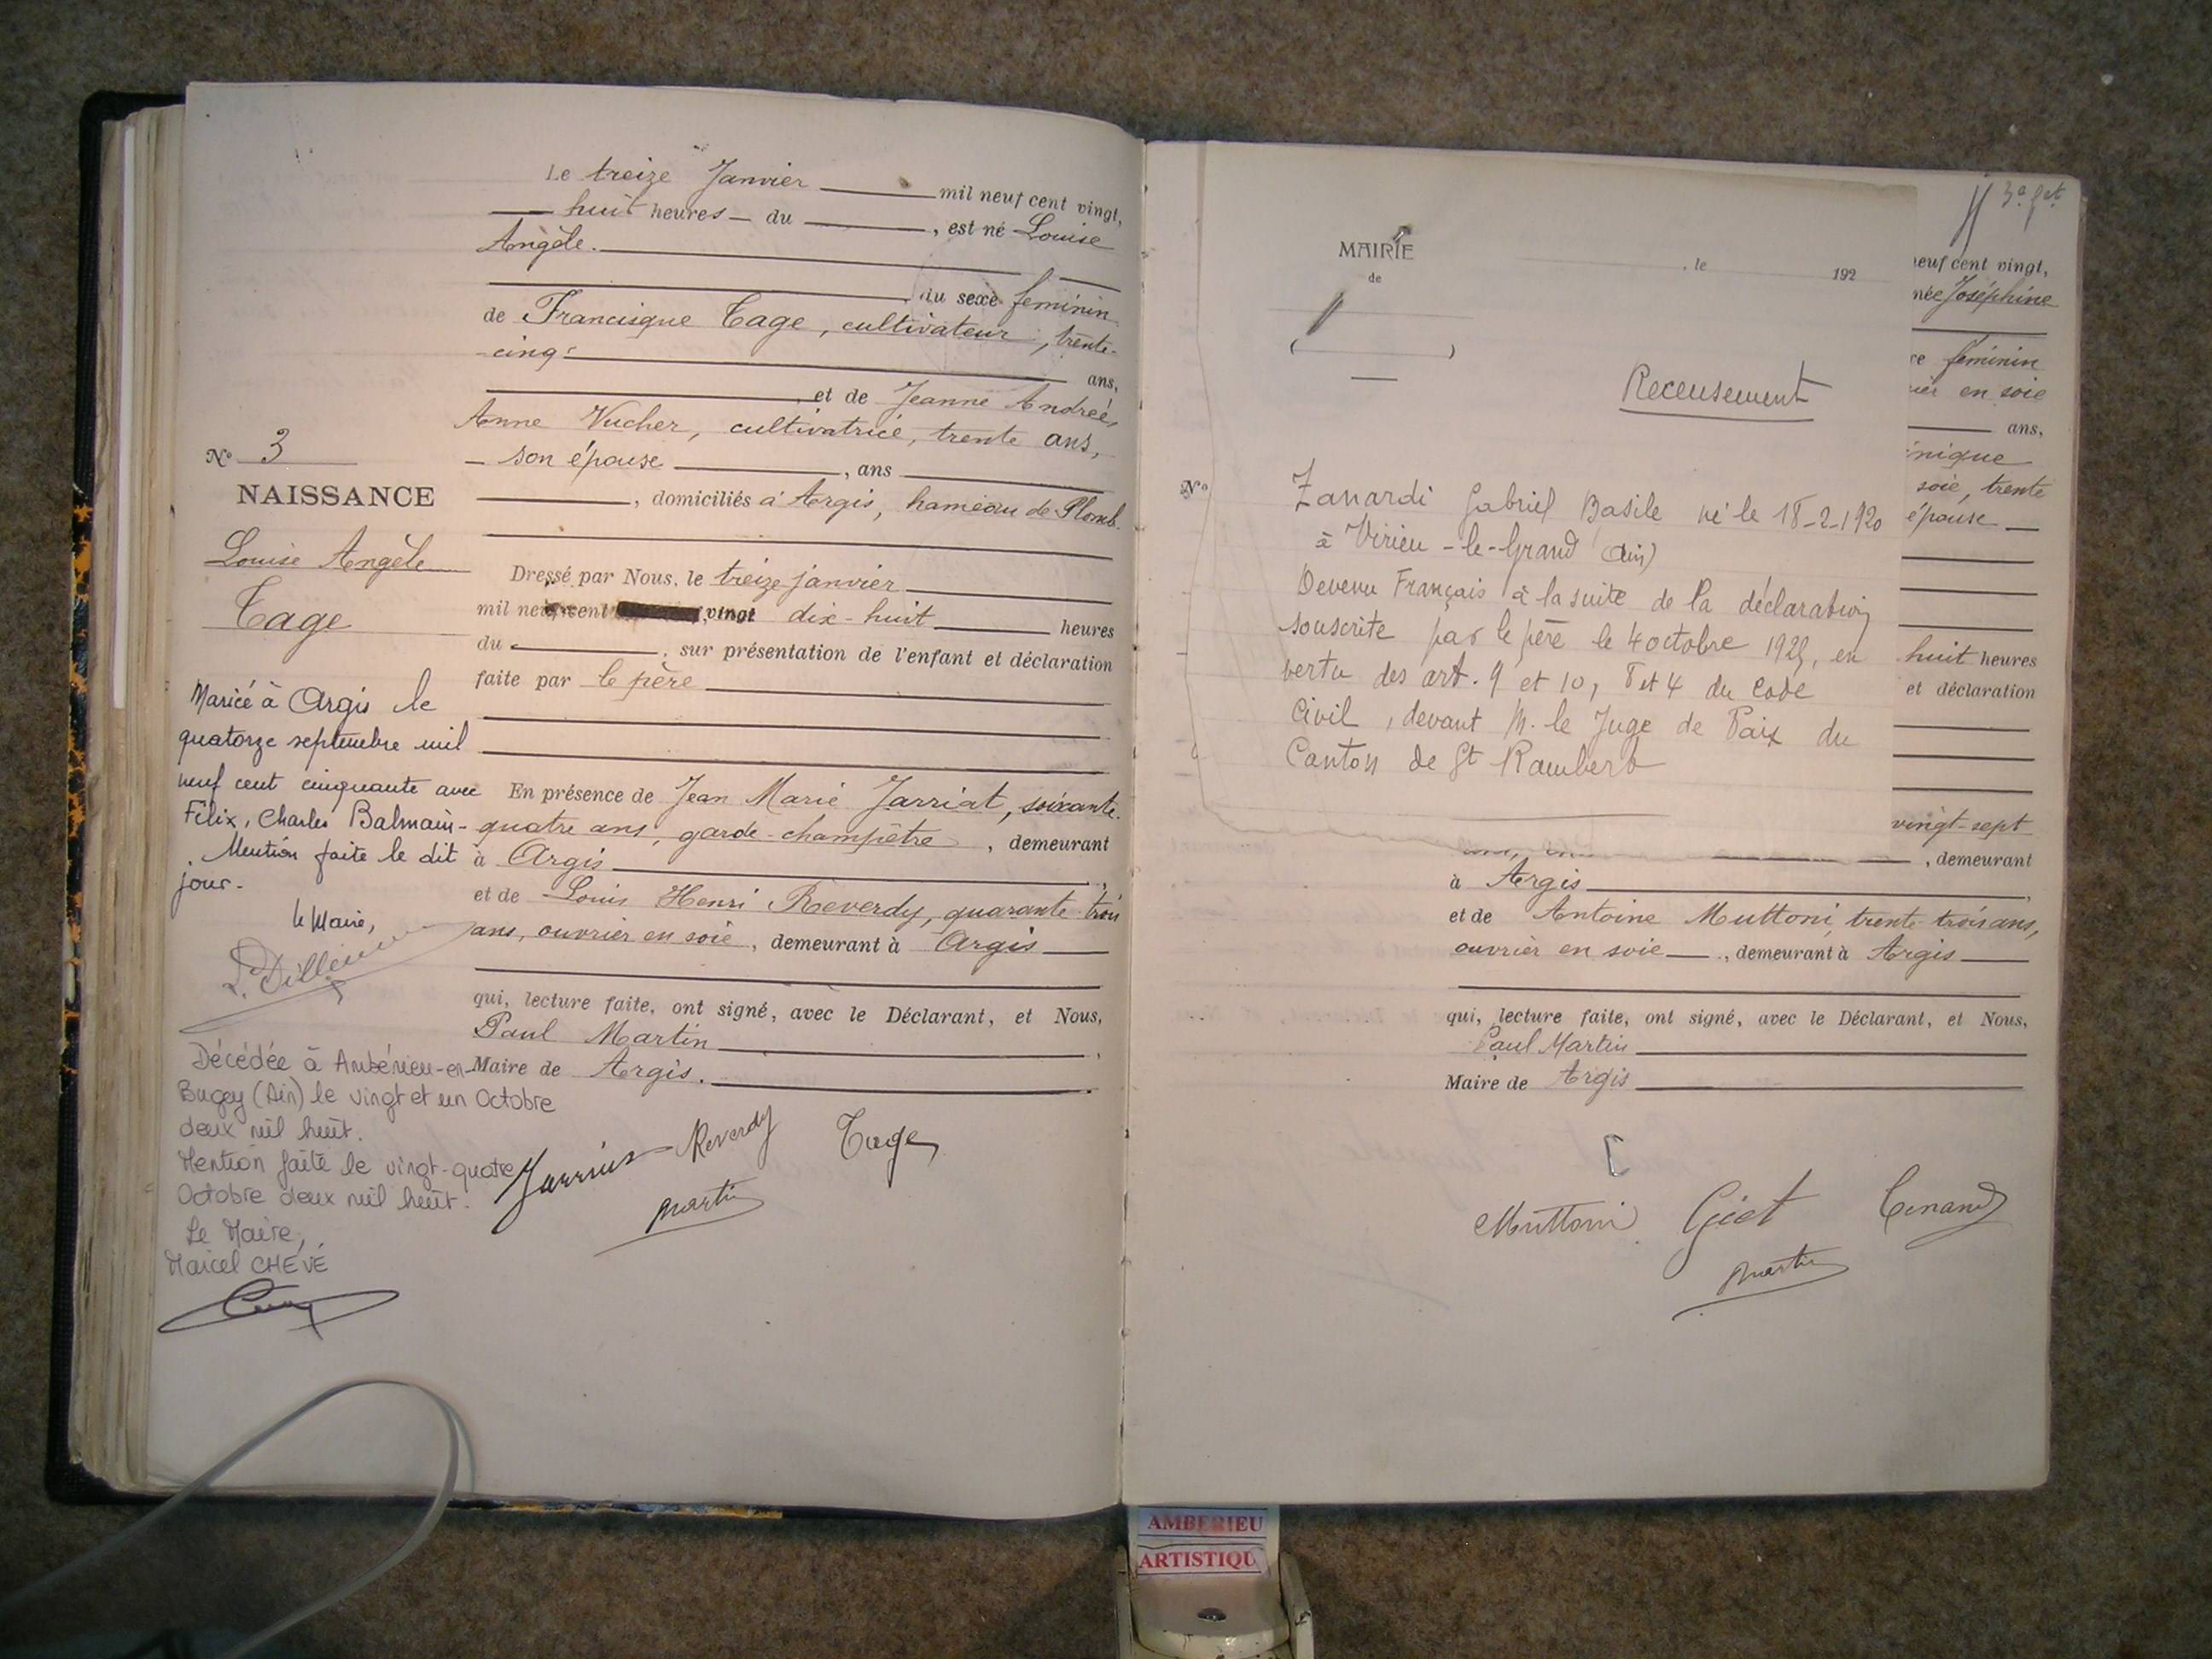 Le treize Janvier mil neuf cent vingt,
huit heures du , est né Louise
Angèle.
du sexe feminin
de Francisque Tage, cultivateur, trente-
cinq ans,
et de Jeanne Andrée,
Anne Vucher, cultivatrice, trente ans,
son épouse , ans
, domiciliés à Argis, hameau de Plomb.
N° 3
NAISSANCE
Louise Angèle
Tage
Dressé par Nous, le treize janvier
mil neuf cent vingt dix-huit heures
du , sur présentation de l'enfant et déclaration
faite par le père
En présence de Jean Marie Jarriat, soixante-
quatre ans, garde-champêtre , demeurant
à Argis
et de Louis Henri Reverdy, quarante trois
ans, ouvrier en soie, demeurant à Argis
qui, lecture faite, ont signé, avec le Déclarant, et Nous,
Paul Martin
Maire de Argis.
Reverdy Tage
Martin
Mariée à Argis le
quatorze septembre mil
neuf cent cinquante avec
Félix, Charles Balmain-
Mention faite le dit
jour-
le Maire,
Décédée à Ambérieu-en-
Bugey (Ain) le vingt et un Octobre
deux mil huit.
Mention faite le vingt-quatre
Octobre deux mil huit.
Le Maire,
Marcel CHEVÉ
MAIRIE
de
, le 192
( )
Recensement
N°
Zanardi Gabriel Basile né le 18-2-1920
à Virieu-le-Grand (Ain)
Devenu Français à la suite de la déclaration
souscrite par le père le 4 octobre 1928, en
vertu des art. 9 et 10, 8 et 4 du Code
Civil, devant M. le Juge de Paix du
Canton de St Rambert
neuf cent vingt,
née Joséphine
feminin
en soie
ans,
soie, trente
épouse
huit heures
et déclaration
vingt-sept
, demeurant
à Argis
et de Antoine Muttoni, trente-trois ans,
ouvrier en soie , demeurant à Argis
qui, lecture faite, ont signé, avec le Déclarant, et Nous,
Paul Martin
Maire de Argis
Muttoni
Martin
AMBERIEU
ARTISTIQU